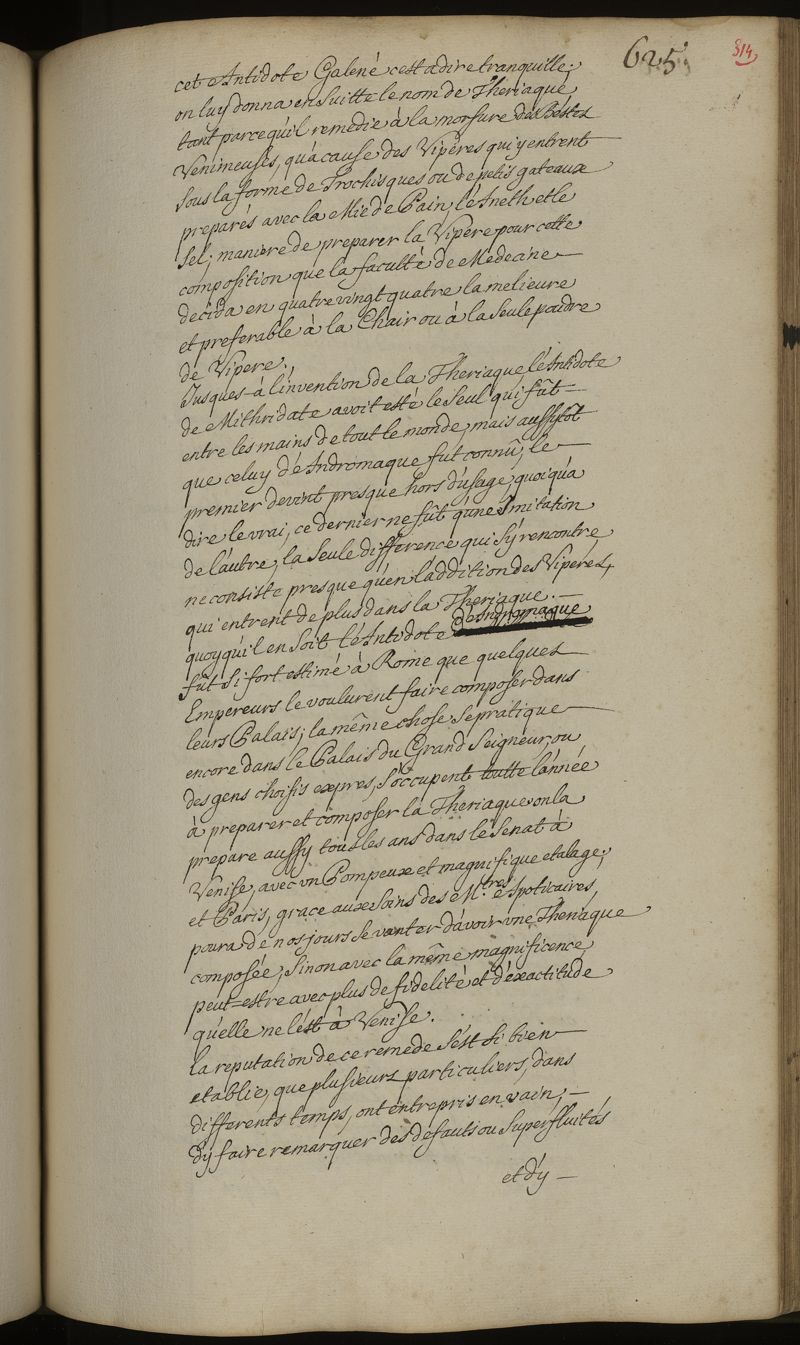 625 314
cet Antidote Galené cest a dire tranquille;
on luy donna en Suitte le nom de Theriaque
tant parcequ'il remedie à la morsure des Bestes
Venimeuses, qu'a cause des Vipères qui y entrent
sous la forme de Trochisques ou de petis gateaux
preparés avec la Mie de Pain, l'Aneth et le
Sel; maniere de preparer la Vipere pour cette
composition que la faculté de Medecine
decida en quatre vingt quatre la melieure
et preferable à la Chair ou à la Seule poudre
de Vipere.
Jusques-à l'invention de la Theriaque l'Antidote
de Mithridate avoit esté le Seul qui fût
entre les mains de tout le monde, mais aussytôt
que celuy d'Andromaque fut connû, le
premier devint presque hors d'usage, quoiqu'a
dire le vrai, ce dernier ne fût qu'une Imitation
de l'autre, la Seule difference qui S'y rencontre
ne consiste presque qu'en l'addition des Viperes
qui entrent de plus dans la Theriaque.
quoyqu'il en Soit l'Antidote d'Andromaque
fût Si fort estimé à Rome que quelques
Empereurs le voulurent faire composer dans
leurs Palais; la même chose Se pratique
encore dans le Palais du Grand Seigneur, ou
des gens choisis expres, S'occupent toutte l'année
à preparer et composer la Theriaque on la
prepare aussy tous les ans dans le Senat à
Venise, avec vn Pompeux et magnifique etalage;
et Paris, grace aux Soins des M.tres Apoticaires,
poura de nos jours Se vanter d'avoir vne Theriaque
composée, Sinon avec la même magnificence,
peut-estre avec plus de fidelité et d'exactitude
qu'elle ne l'est à Venise.
la reputation de ce remede S'est Si bien
etablie, que plusieurs particuliers, dans
differents temps, ont entrepris en vain,
d'y faire remarquer des defauts ou Superfluités
et d'y